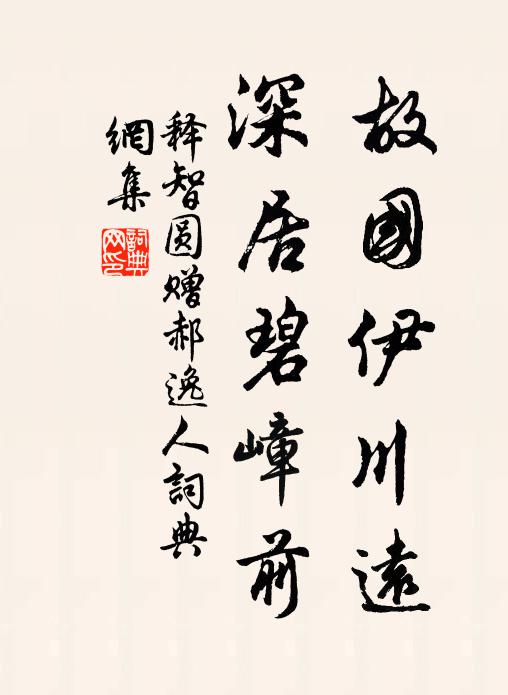 故國伊川遠
深居碧嶂前
释智圆赠郝逸人詞典
網集
詞典
网印